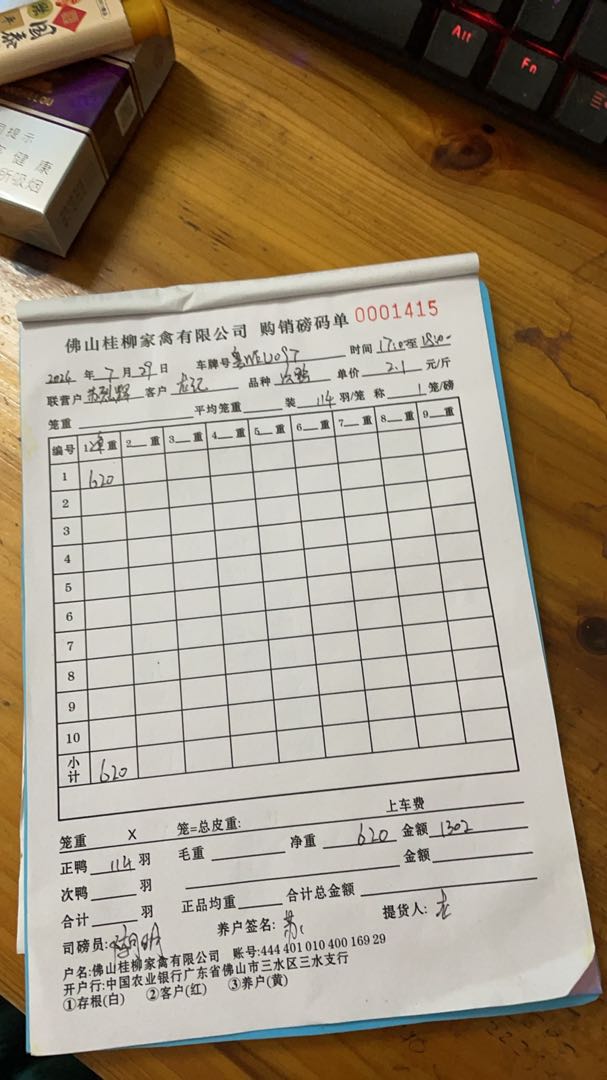 国泰
提示
健康
所吸烟
LOU
Alt
Fn
佛山桂柳家禽有限公司 购销磅码单 0001415
2024 年 7 月 29 日 车牌号 时间 17:00至18:00
联营户 客户 龙记 品种 单价 2.1 元/斤
笼重 平均笼重 装 114 羽/笼 称 1 笼/磅
编号 1净重 2 重 3 重 4 重 5 重 6 重 7 重 8 重 9 重
1 620
2
3
4
5
6
7
8
9
10
小计 620
上车费
笼重 X 笼=总皮重:
正鸭 114 羽 毛重 净重 620 金额 1302
次鸭 羽 金额
合计 羽 正品均重 合计总金额
司磅员: 养户签名: 提货人: 龙
户名:佛山桂柳家禽有限公司 账号:444 401 010 400 169 29
开户行:中国农业银行广东省佛山市三水区三水支行
①存根(白) ②客户(红) ③养户(黄)